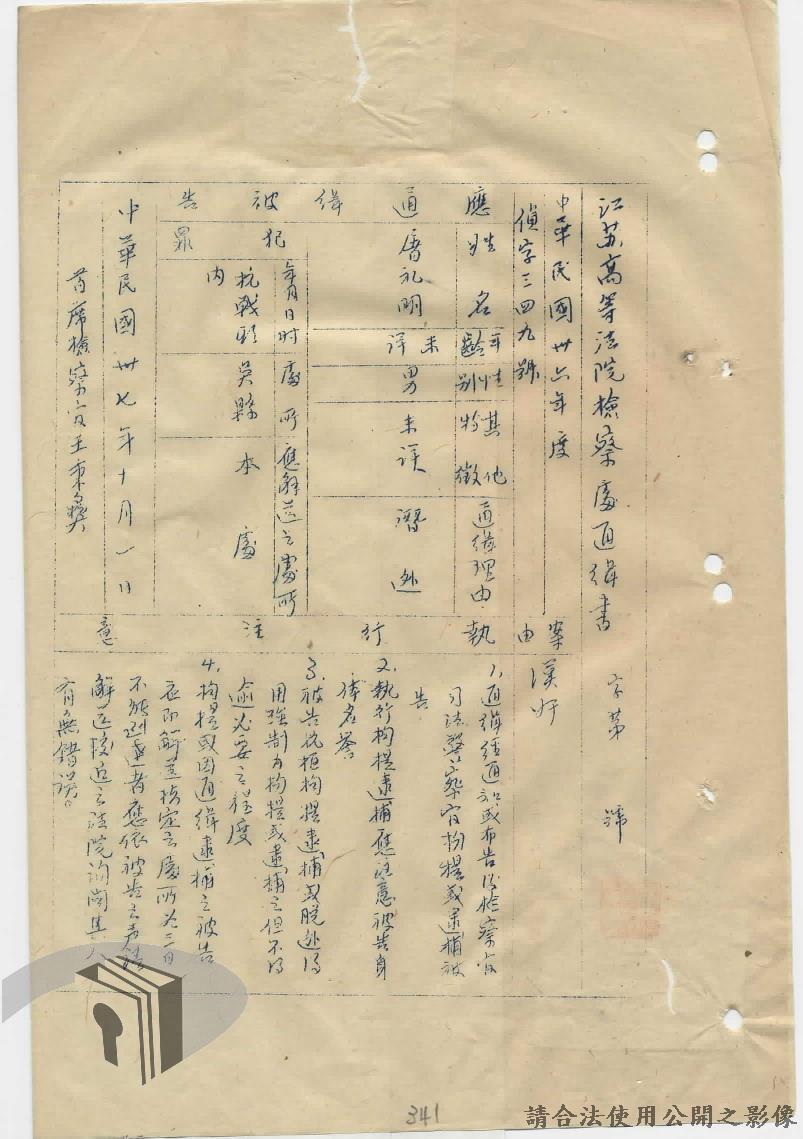 江苏高等法院檢察處通緝書 字第 號
中華民國卅六年度
偵字三四九號
案由 漢奸
應通緝被告
姓名 屠礼明
年齡 未详
性別 男
其他特徵 未详
通緝理由 潛逃
犯罪
年月日时 抗戰期內
處所 吳縣
應解送之處所 本處
執行注意
1、通緝經通知或布告後檢察官
司法警察官拘提或逮捕被
告
2、執行拘提逮捕應注意被告身
体名誉
3、被告抗拒拘提逮捕或脱逃得
用強制力拘提或逮捕之但不得
逾必要之程度
4、拘提或因通緝逮捕之被告
应即解送指定之處所如三日
不能到達者應依被告之声請
解送較近之法院詢問其人
有無錯誤。
中華民國卅七年十月一日
首席檢察官王秉彝
341
請合法使用公開之影像